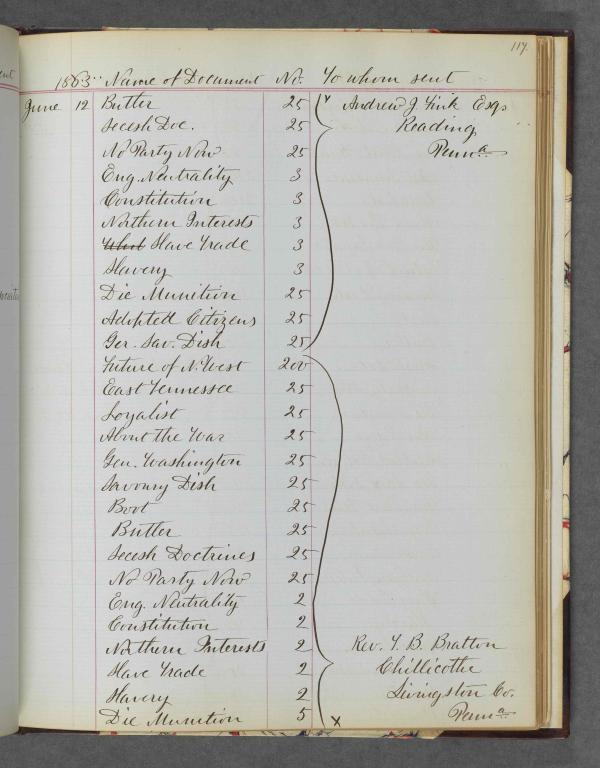 117.
1863 Name of Document No. To whom sent
June 12 Butler 25 Andrew J Fink Esq.
Secesh Doc. 25 Reading,
No Party Now 25 Penna.
Eng. Neutrality 3
Constitution 3
Northern Interests 3
Slave Trade 3
Slavery 3
Die Munition 25
Adopted Citizens 25
Ger. Sav. Dish 25
Future of N. West 200
East Tennessee 25
Loyalist 25
About the War 25
Gen. Washington 25
Savoury Dish 25
Boot 25
Butler 25
Secesh Doctrines 25
No Party Now 25
Eng. Neutrality 2
Constitution 2
Northern Interests 2 Rev. T. B. Bratton
Slave Trade 2 Chillicothe
Slavery 2 Livingston Co.
Die Munition 5 x Penna.